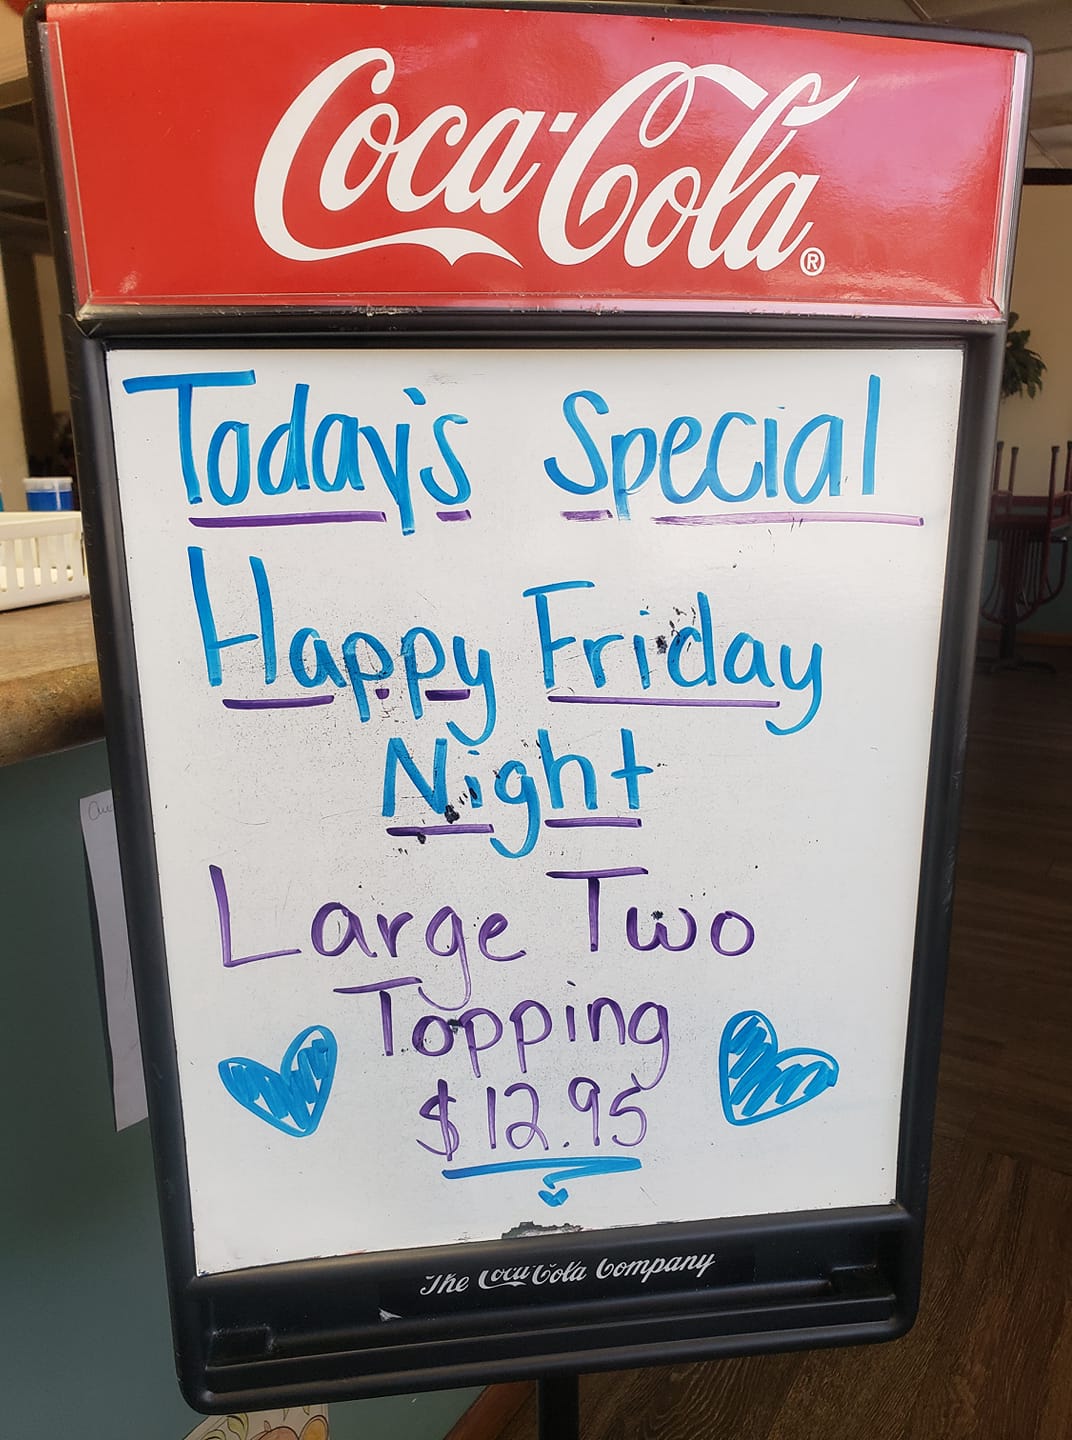 Coca-Cola®
Today's Special
Happy Friday
Night
Large Two
Topping
$12.95
The Coca-Cola Company